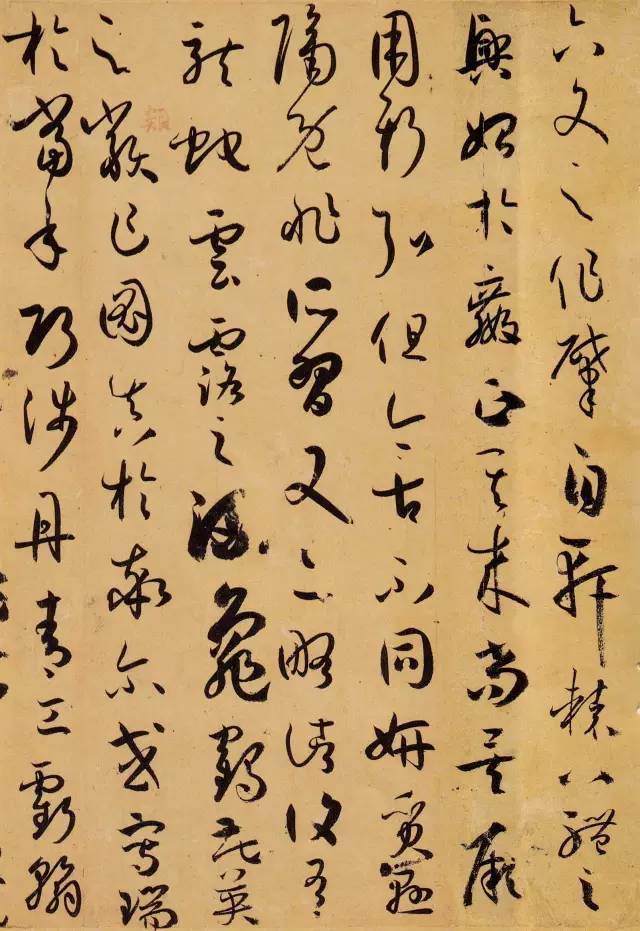 六文之作肇自軒轅八體之
興始於嬴正其來尚矣厥
用斯弘但今古不同妍質懸
隔既非所習又亦略諸復有
龍蛇雲露之流龜鶴花英
之類乍圖真於率爾或寫瑞
於當年巧涉丹青工虧翰